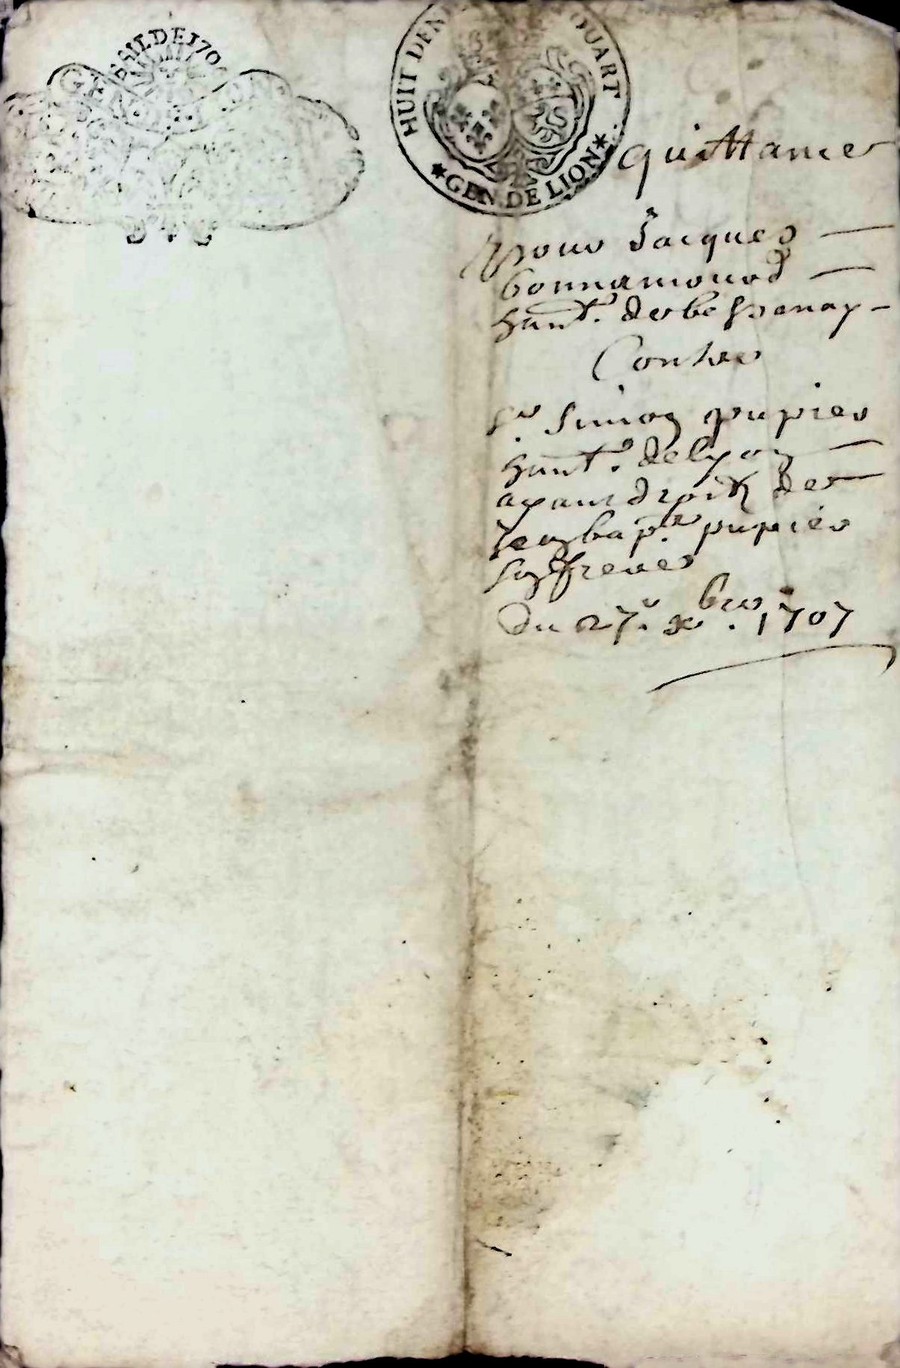 HUIT DEN QUART
GEN DE LION
quittance
Pour Jacques
bonnamour
hant. de bessenay
Contre
Sr Simon pupier
hant. de lyon
ayant droit de
Jean bapt. pupier
son frere
Du 27e xbre 1707